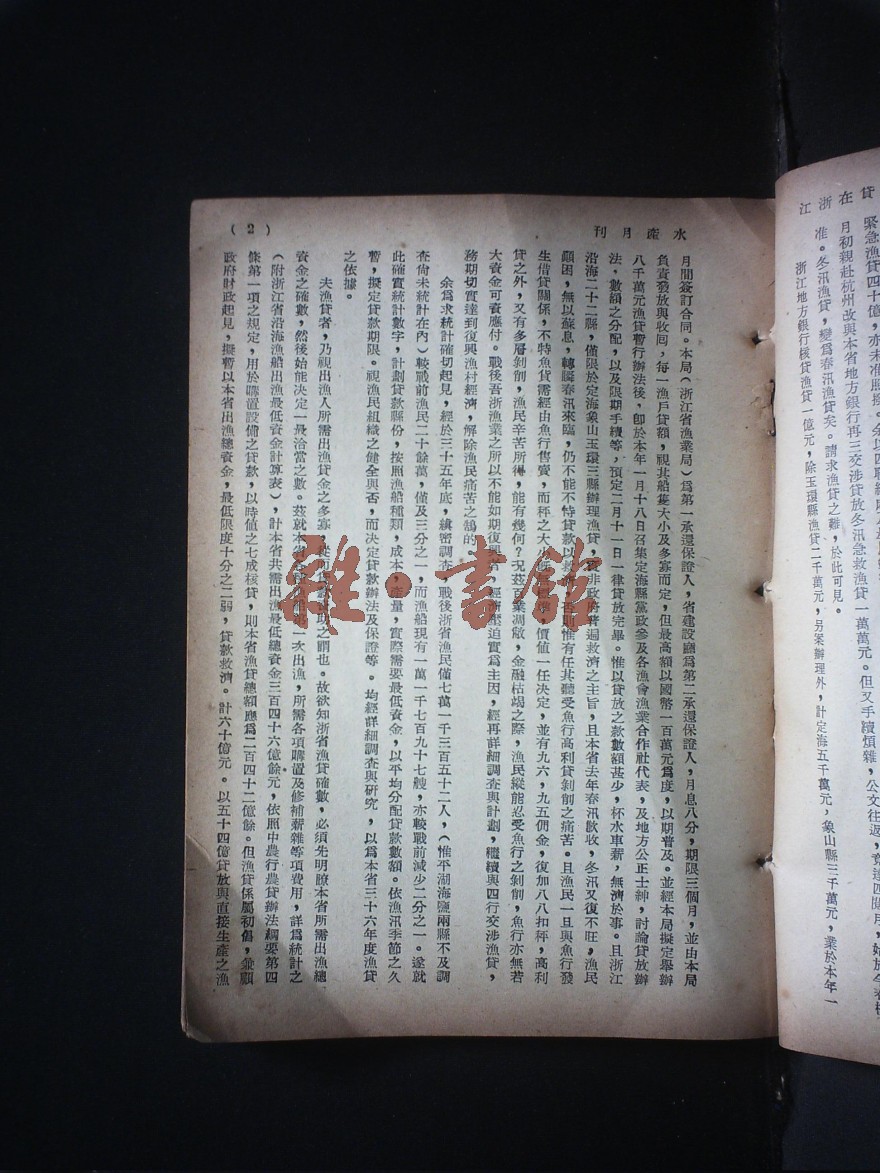 貸在浙江
緊急漁貸四十億,亦未准照撥。
月初親赴杭州改與本省地方銀行再三交涉貸放冬汛急救漁貸一萬萬元。但又手續煩雜,公文往返,
准。冬汛漁貸,變爲春汛漁貸矣。請求漁貸之難,於此可見。
浙江地方銀行核貸漁貸一億元,除玉環縣漁貸二千萬元,另案辦理外,計定海五千萬元,象山縣三千萬元,業於本年一
水產月刊
(2)
月間簽訂合同。本局(浙江省漁業局)爲第一承還保證人,省建設廳爲第二承還保證人,月息八分,期限三個月,並由本局
負責發放與收囘,每一漁戶貸額,視其船隻大小及多寡而定,但最高額以國幣一百萬元爲度,以期普及。並經本局擬定舉辦
八千萬元漁貸暫行辦法後,卽於本年一月十八日召集定海縣黨政參及各漁會漁業合作社代表,及地方公正士紳,討論貸放辦
法,數額之分配,以及限期手續等,預定二月十一日一律貸放完畢。惟以貸放之款數額甚少,杯水車薪,無濟於事。且浙江
沿海二十二縣,僅限於定海象山玉環三縣辦理漁貸,實非政府普遍救濟之主旨,且本省去年春汛歉收,冬汛又復不旺,漁民
顚困,無以蘇息,轉瞬春汛來臨,仍不能不特貸款以救濟,否則惟有任其聽受魚行高利貸剝削之痛苦。且漁民一旦與魚行發
生借貸關係,不特魚貨需經由魚行售賣,而秤之大小,價值一任決定,並有九六,九五佣金,復加八八扣秤,高利
貸之外,又有多層剝削,漁民辛苦所得,能有幾何?况茲百業凋敝,金融枯竭之際,漁民縱能忍受魚行之剝削,魚行亦無若
大資金可資應付。戰後吾浙漁業之所以不能如期復興者,經濟壓迫實爲主因,經再詳細調查與計劃,繼續與四行交涉漁貸,
務期切實達到復興漁村經濟,解除漁民痛苦之鵠的。
余爲求統計確切起見,經於三十五年底,縝密調查,戰後浙省漁民僅七萬一千三百五十二人,(惟平湖海鹽兩縣不及調
查尙未統計在內)較戰前漁民二十餘萬,僅及三分之一,而漁船現有一萬一千七百九十七艘,亦較戰前減少二分之一。遂就
此確實統計數字,計劃貸款縣份,按照漁船種類,成本,產量,實際需要最低資金,以平均分配貸款數額。依漁汛季節之久
暫,擬定貸款期限。視漁民組織之健全與否,而決定貸款辦法及保證等。均經詳細調查與硏究,以爲本省三十六年度漁貸
之依據。
夫漁貸者,乃視出漁人所需出漁貸金之多寡,從而貸款以助之謂也。故欲知浙省漁貸確數,必須先明瞭本省所需出漁總
資金之確數,然後始能決定一最洽當之數。茲就本省各種漁船第一次出漁,所需各項購置及修補薪雜等項費用,詳爲統計之
(附浙江省沿海漁船出漁最低資金計算表),計本省共需出漁最低總資金三百四十六億餘元,依照中農行農貸辦法綱要第四
條第一項之規定,用於購置設備之貸款,以時値之七成核貸,則本省漁貸總額應爲二百四十二億餘。但漁貸係屬初倡,兼顧
政府財政起見,擬暫以本省出漁總資金,最低限度十分之二弱,貸款救濟。計六十億元。以五十四億貸放與直接生產之漁
雜·書館